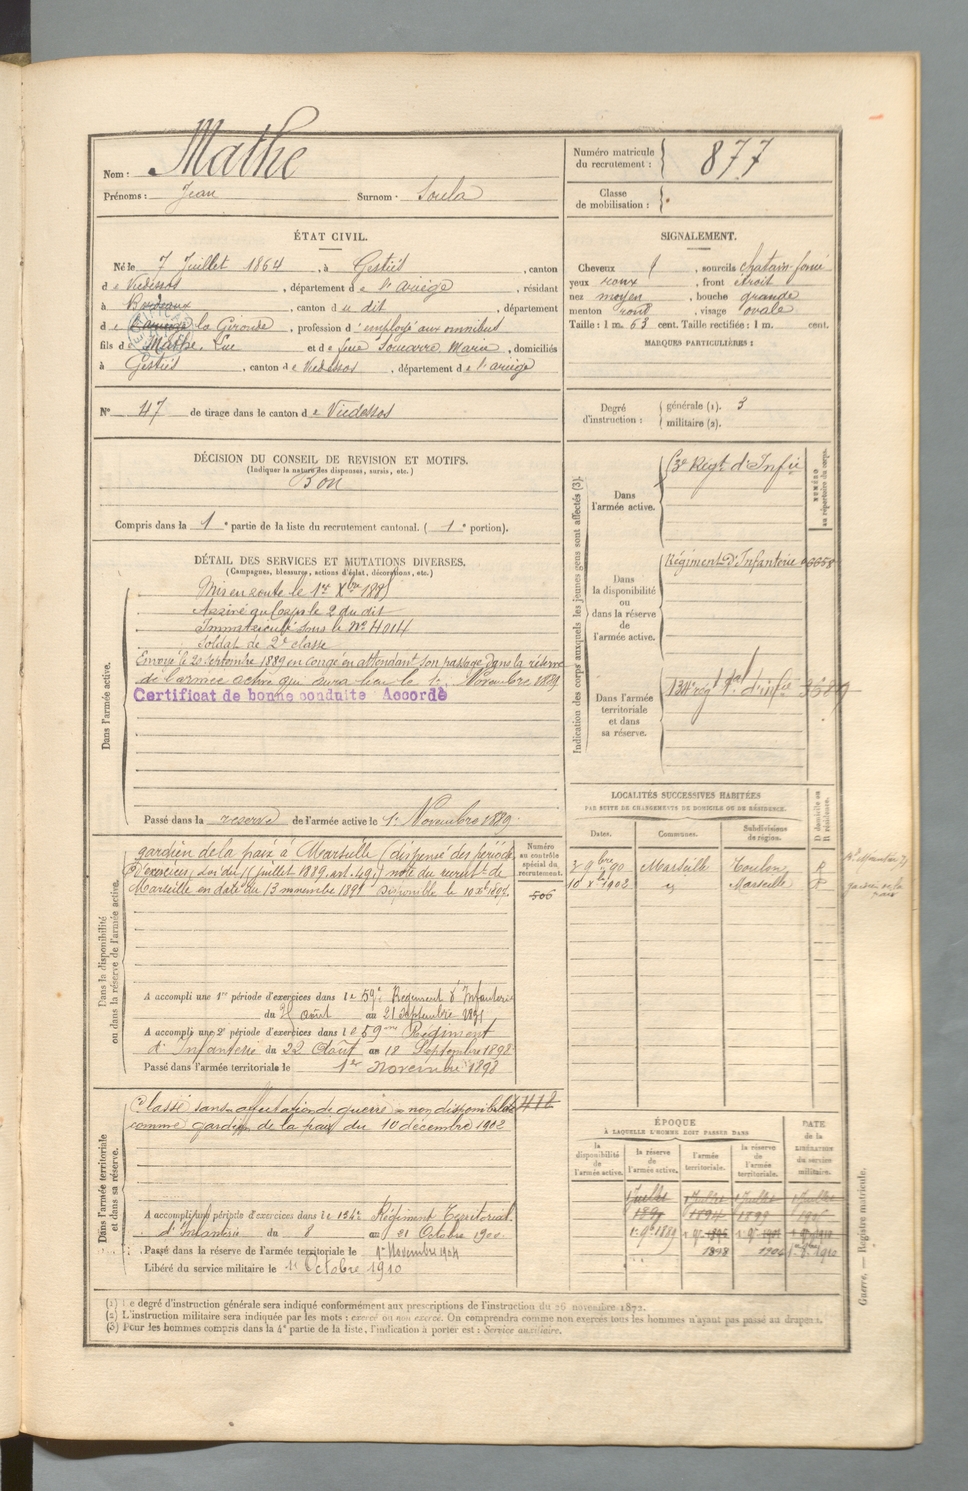 Nom : Mathe
Prénoms : Jean Surnom : Soula
Numéro matricule
du recrutement : 877
Classe
de mobilisation :
ÉTAT CIVIL.
Né le 7 Juillet 1864, à Gestiès, canton
de Vicdessos, département de l'ariège, résidant
à Bordeaux, canton du dit, département
de la Gironde, profession d'employé aux omnibus
fils de Mathe, Luc et de feue Marie, domiciliés
à Gestiès, canton de Vicdessos, département de l'ariège
N° 47 de tirage dans le canton de Vicdessos
SIGNALEMENT.
Cheveux, sourcils chatain foncé
yeux roux, front étroit
nez moyen, bouche grande
menton rond, visage ovale
Taille : 1 m. 63 cent. Taille rectifiée : 1 m. cent.
MARQUES PARTICULIÈRES :
Degré
d'instruction :
générale (1). 3
militaire (2).
DÉCISION DU CONSEIL DE REVISION ET MOTIFS.
(Indiquer la nature des dispenses, sursis, etc.)
Bon
Compris dans la 1e partie de la liste du recrutement cantonal. (1e portion).
DÉTAIL DES SERVICES ET MUTATIONS DIVERSES.
(Campagnes, blessures, actions d'éclat, décorations, etc.)
Dans l'armée active.
Mis en route le 1er Xbre 1885
Arrivé au Corps le 2 du dit
Immatriculé sous le N° 4014
Soldat de 2e classe
Envoyé le 20 Septembre 1889 en congé en attendant son passage dans la réserve
de l'armée active qui aura lieu le 1er Novembre 1889
Certificat de bonne conduite Accordé
Passé dans la reserve de l'armée active le 1er Novembre 1889
Indication des corps auxquels les jeunes gens sont affectés (3).
NUMÉRO
au répertoire du corps.
Dans
l'armée active.
Régt d'Infie
Dans
la disponibilité
ou
dans la réserve
de
l'armée active.
Régiment d'Infanterie
Dans l'armée
territoriale
et dans
sa réserve.
134e régt tal d'infie
LOCALITÉS SUCCESSIVES HABITÉES
PAR SUITE DE CHANGEMENTS DE DOMICILE OU DE RÉSIDENCE.
D domicile ou
R résidence.
Dates. Communes. Subdivisions
de région.
9bre 90 Marseille Toulon R
10 Xbre 1902 Marseille R
gardien de la
paix
Dans la disponibilité
ou dans la réserve de l'armée active.
Numéro
au contrôle
spécial du
recrutement.
506
gardien de la paix à Marseille (dispensé des périodes
d'exercices, Loi du 15 juillet 1889, art. 49) note du recrutt de
Marseille en date du 13 novembre 1891 Disponible le 10 Xbre 1897.
A accompli une 1re période d'exercices dans le 59e Régiment d'Infanterie
du Août au 21 Septembre 1891
A accompli une 2e période d'exercices dans le 59me Régiment
d'Infanterie du 22 Août au 18 Septembre 1898
Passé dans l'armée territoriale le 1er Novembre 1898
Dans l'armée territoriale
et dans sa réserve.
Classé sans affectation de guerre = non disponible
comme gardien de la paix du 10 décembre 1902
A accompli une période d'exercices dans le 134e Régiment Territorial
d'Infanterie du 8 au 21 Octobre 1900.
Passé dans la réserve de l'armée territoriale le 1er Novembre 1904
Libéré du service militaire le 1er Octobre 1910
ÉPOQUE
À LAQUELLE L'HOMME DOIT PASSER DANS
DATE
de la
LIBÉRATION
du service
militaire.
la
disponibilité
de
l'armée active.
la réserve
de
l'armée active.
l'armée
territoriale.
la réserve
de
l'armée
territoriale.
1 Juillet 1 Juillet 1 Juillet 1 Juillet
1er 9bre 1889
1898
(1) Le degré d'instruction générale sera indiqué conformément aux prescriptions de l'instruction du 26 novembre 1872.
(2) L'instruction militaire sera indiquée par les mots : exercé ou non exercé. On comprendra comme non exercés tous les hommes n'ayant pas passé au drapeau.
(3) Pour les hommes compris dans la 4e partie de la liste, l'indication à porter est : Service auxiliaire.
Guerre. — Registre matricule.